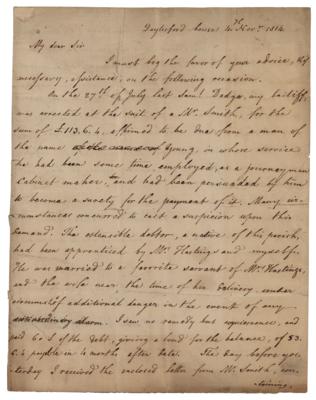 Daylesford house 4th Novr. 1814
My dear Sir
I must beg the favor of your advice, & if
necessary, assistance, on the following occasion.
On the 27th of July last Saml. Dodge, my bailiff,
was arrested at the suit of a Mr. Smith, for the
sum of £113.6.4, affirmed to be due from a man of
the name Young, in whose service
he had been some time employed, as a journeyman
cabinet maker, and had been persuaded by him
to become a surety for the payment of it. Many cir-
cumstances concurred to cast a suspicion upon this
demand. The ostensible debtor, a native of this parish,
had been apprenticed by Mrs. Hastings and myself.
He was married to a favorite servant of Mrs. Hastings,
and the wife near the time of her delivery, under
circumstances of additional danger in the event of any
alarm. I saw no remedy but acquiescence, and
paid 60 £ of the debt, giving a bond for the balance, of 53.
6.4 payable in 4 months after date. The day before yes-
terday I received the enclosed letter from Mr. Smith, con-
taining